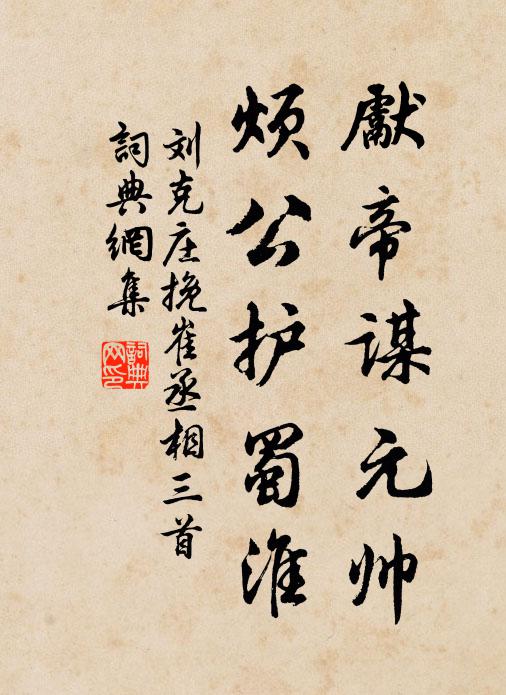 獻帝谋元帅
烦公护蜀淮
刘克庄挽崔丞相三首
詞典網集
詞典网印